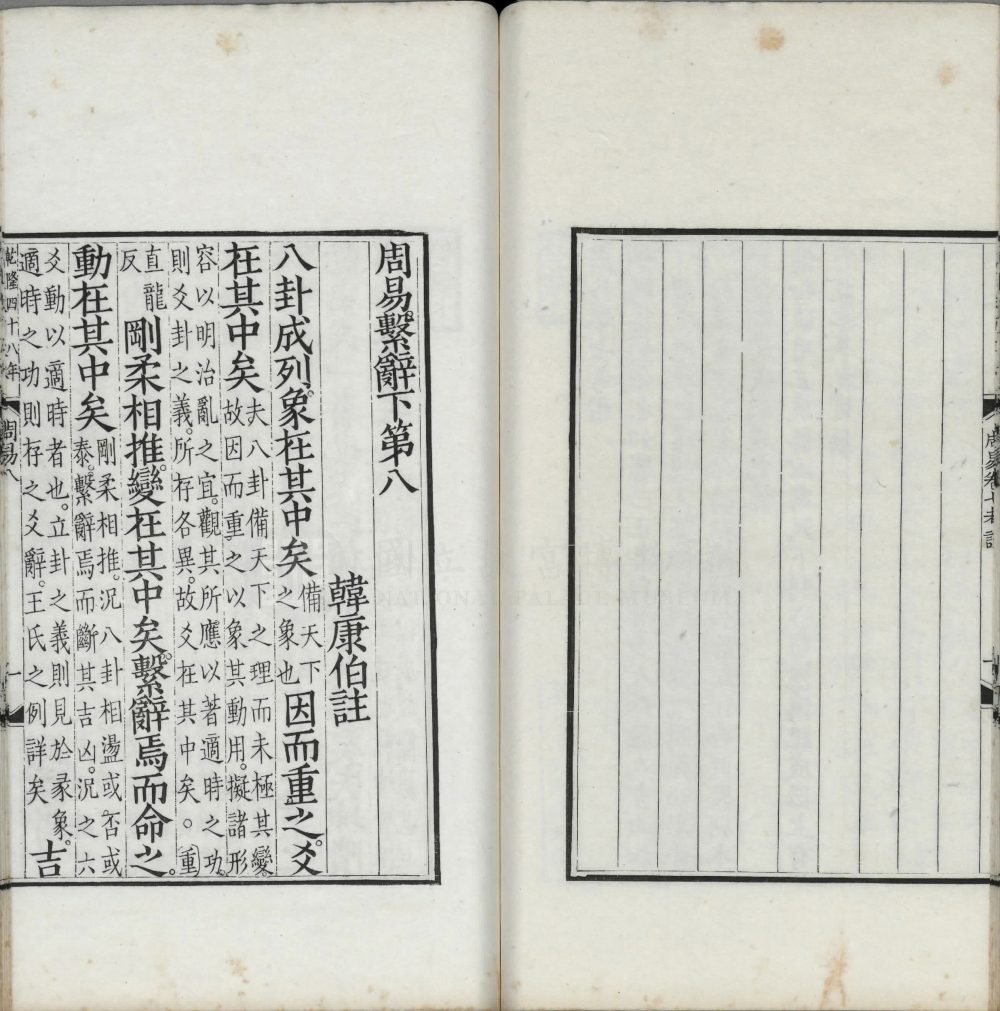 周易卷七考証
周易繫辭下第八
韓康伯註
八卦成列。象在其中矣備天下之象也因而重之。爻
在其中矣夫八卦備天下之理而未極其變。故因而重之以象其動用。擬諸形
容以明治亂之宜。觀其所應以著適時之功。則爻卦之義。所存各異。故爻在其中矣。重
直龍反剛柔相推。變在其中矣。繫辭焉而命之。
動在其中矣剛柔相推。況八卦相盪或否或泰。繫辭焉而斷其吉凶。況之六
爻動以適時者也。立卦之義則見於彖象。適時之功則存之爻辭。王氏之例詳矣吉
乾隆四十八年
周易八
一
NATIONAL PALACE MUSEUM